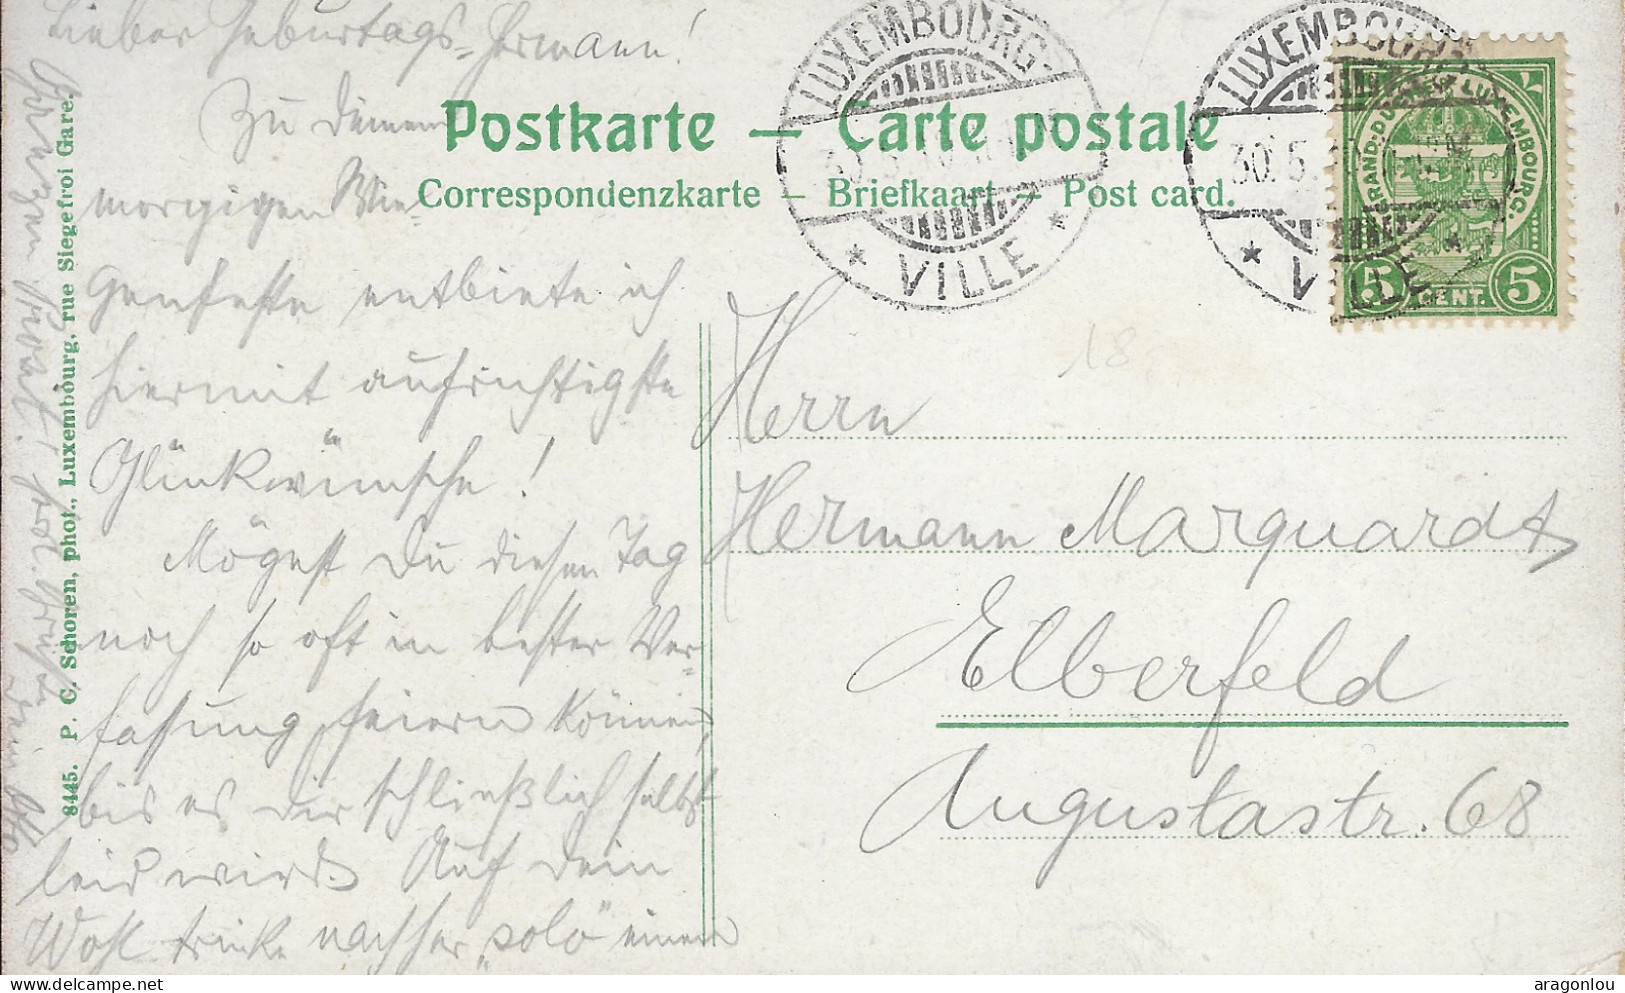 Lieber Geburtags-Hermann!
Zu Deinem
morgigen Wie-
genfeste entbiete ich
hiermit aufrichtigste
Glückwünsche!
Mögest Du diesen Tag
noch so oft in bester Ver-
fassung feiern können,
bis es Dir schließlich selbst
leid wird. Auf Dein
Wohl trinke nachher "solo" einen
Prosit!
Dein Otto
8445. P. C. Schoren, phot., Luxembourg, rue Siegefroi Gare.
Postkarte — Carte postale
Correspondenzkarte – Briefkaart – Post card.
LUXEMBOURG-
VILLE
LUXEMBOURG-
30.5.
VILLE
GRAND-DUCHÉ DE LUXEMBOURG.
5 CENT. 5
18
Herrn
Hermann Marquardt
Elberfeld
Augustastr. 68
aragonlou